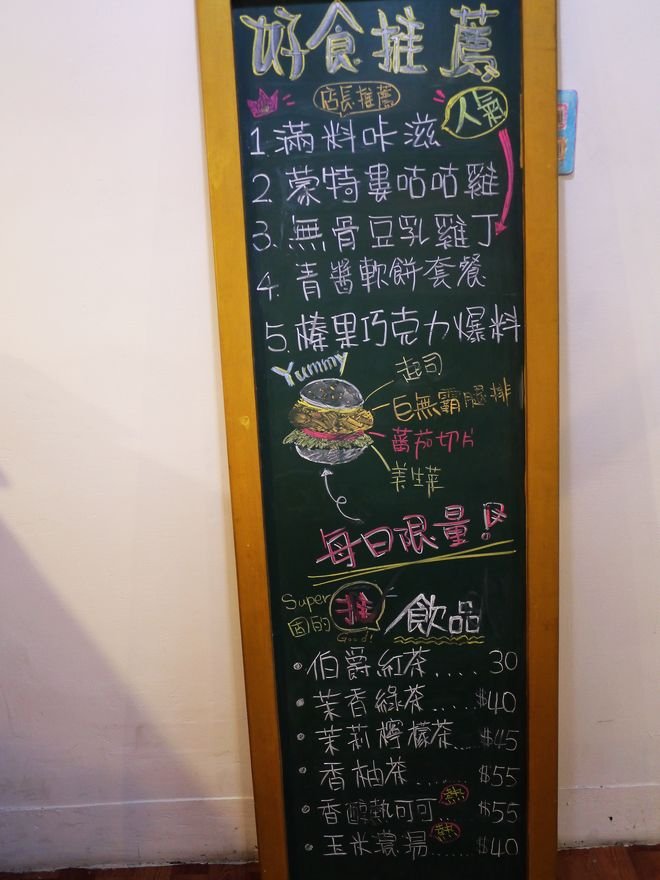 好食推薦
店長推薦
人氣
1 滿料咔滋
2. 蒙特婁咕咕雞
3. 無骨豆乳雞丁
4. 青醬軟餅套餐
5. 榛果巧克力爆料
Yummy
起司
巨無霸腿排
蕃茄切片
美生菜
每日限量!
Super
固的
推
Good!
飲品
·伯爵紅茶..... 30
·茉香綠茶..... $40
·茉莉檸檬茶... $45
·香柚茶....... $55
·香醇熱可可.. 熱 $55
·玉米濃湯..... 熱 $40